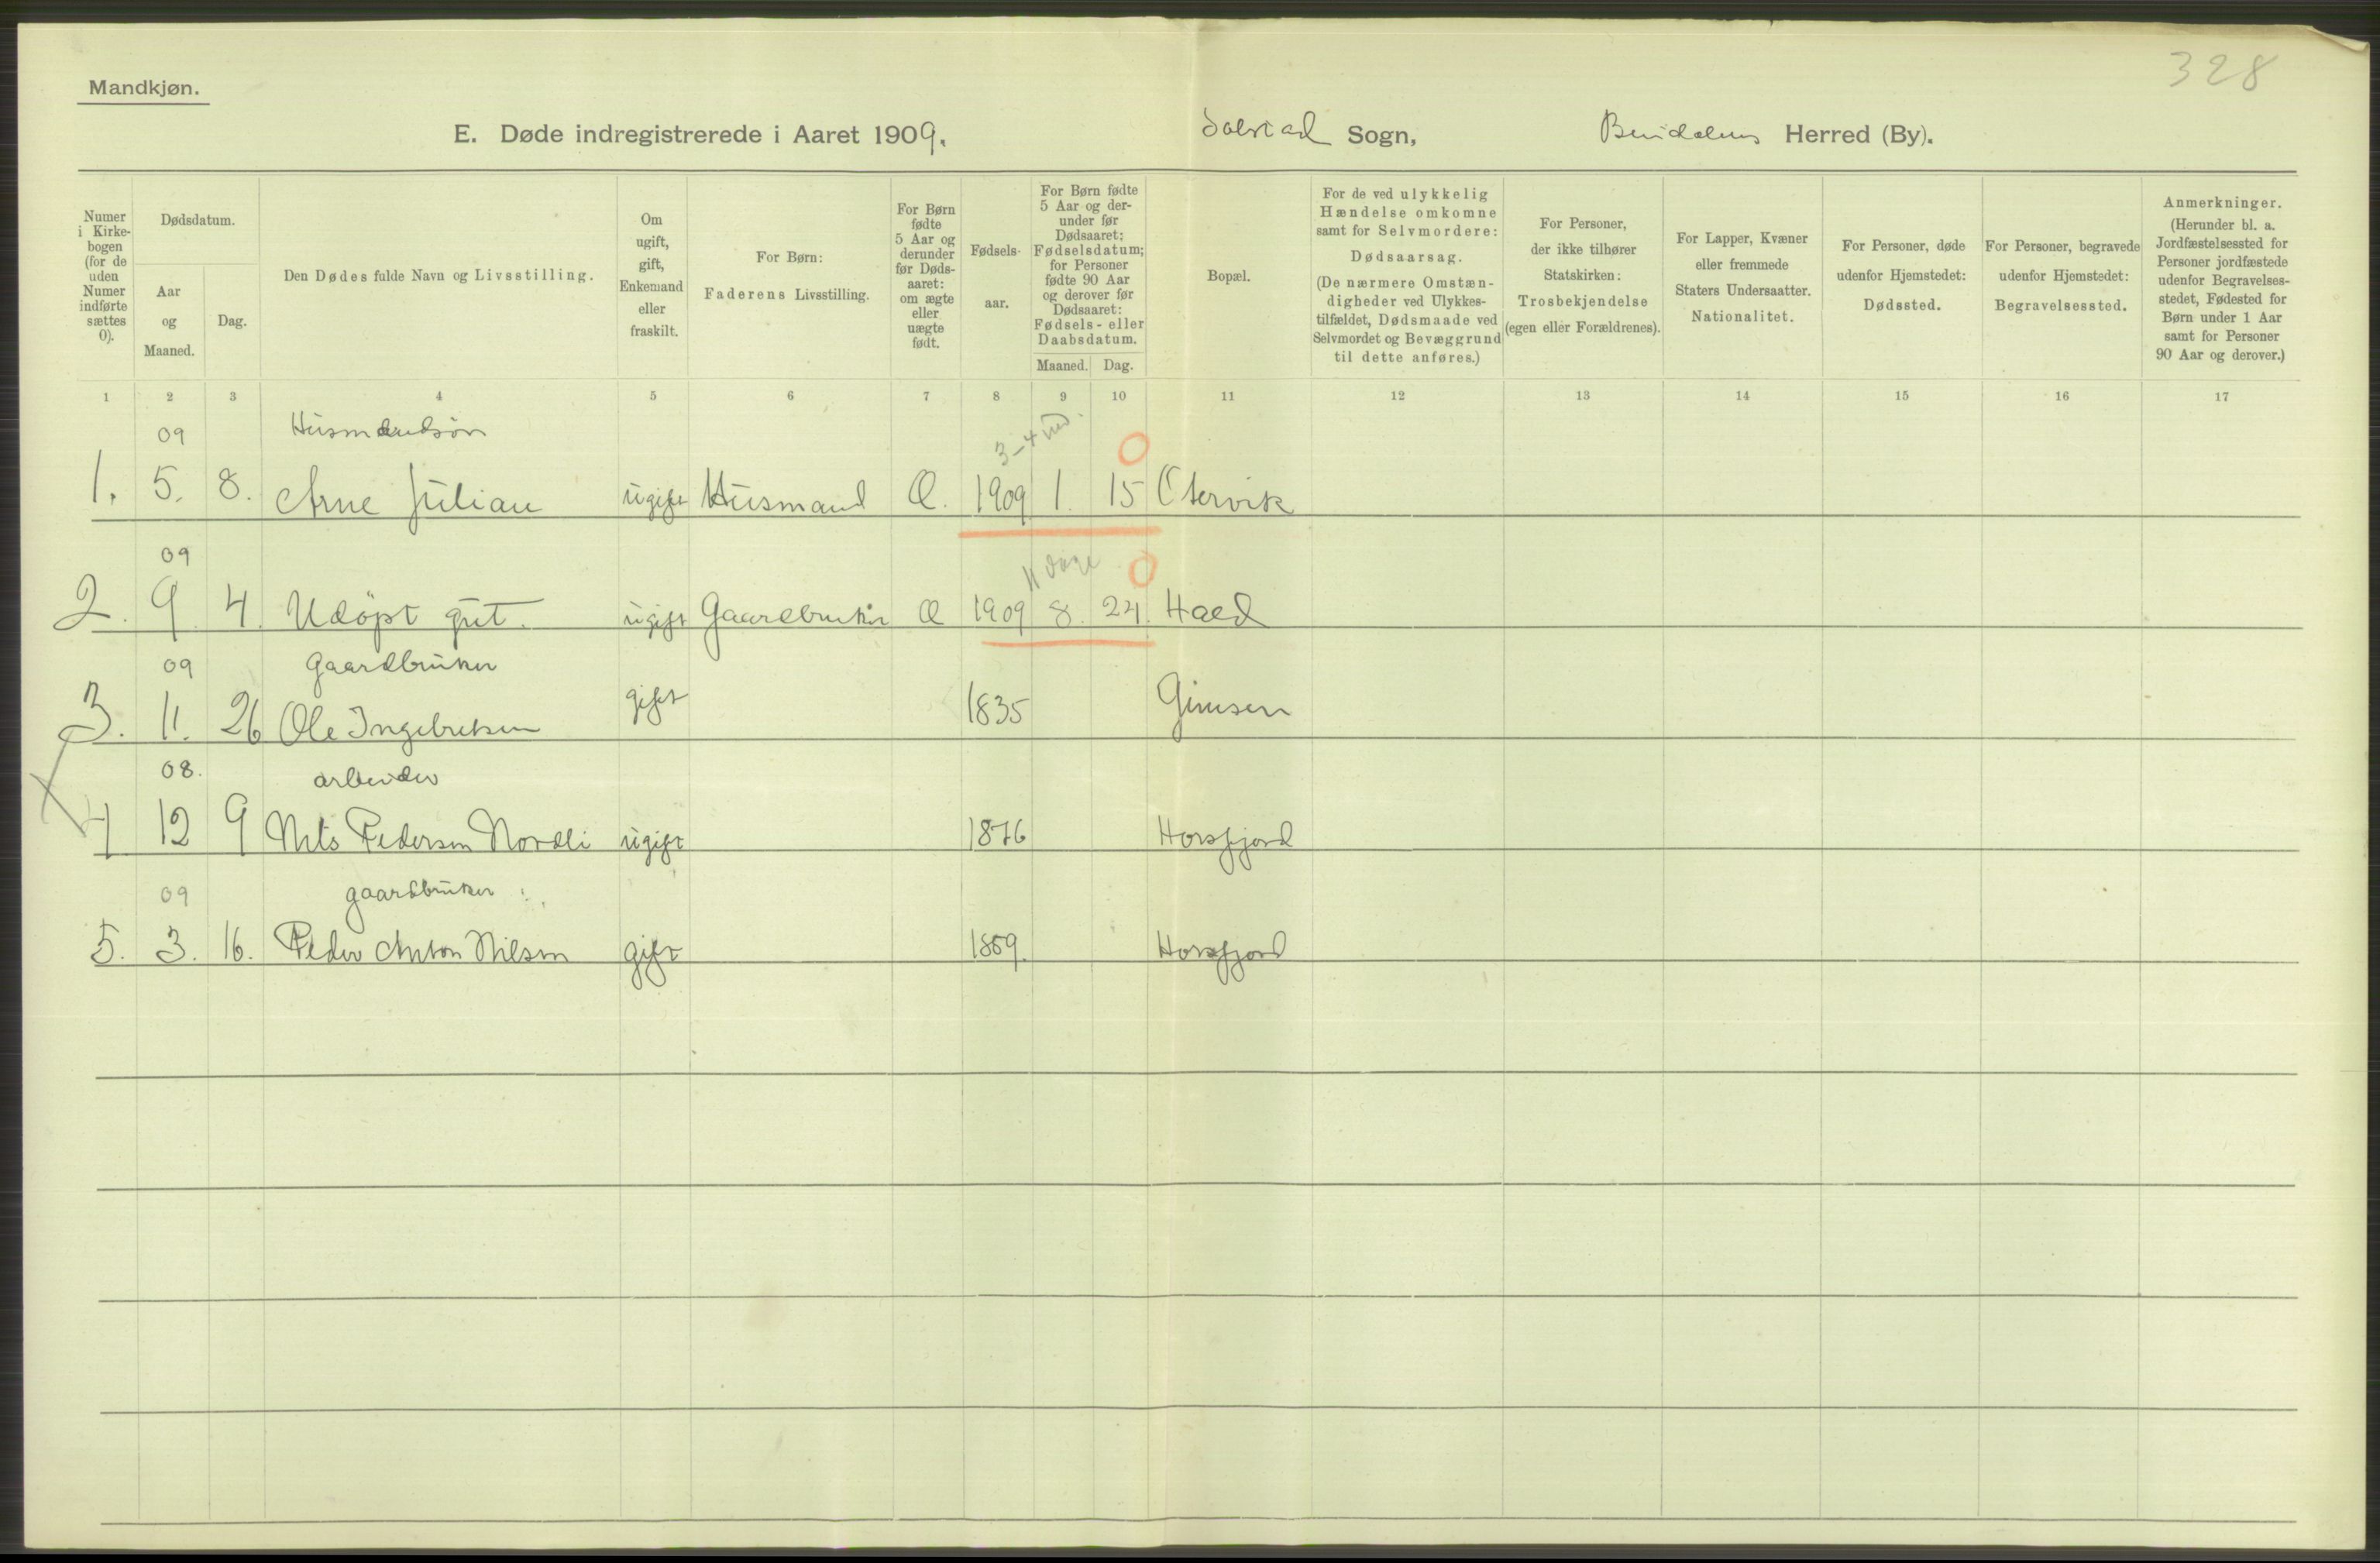 328
Mandkjøn.
E. Døde indregistrerede i Aaret 1909. Solstad Sogn, Bindalens Herred (By).
Numer i Kirkebogen (for de uden Numer indførte sættes 0).
Dødsdatum.
Aar og Maaned.
Dag.
Den Dødes fulde Navn og Livsstilling.
Om ugift, gift, Enkemand eller fraskilt.
For Børn: Faderens Livsstilling.
For Børn fødte 5 Aar og derunder før Dødsaaret: om ægte eller uægte født.
Fødselsaar.
For Børn fødte 5 Aar og derunder før Dødsaaret: Fødselsdatum; for Personer fødte 90 Aar og derover før Dødsaaret: Fødsels- eller Daabsdatum.
Maaned. Dag.
Bopæl.
For de ved ulykkelig Hændelse omkomne samt for Selvmordere: Dødsaarsag. (De nærmere Omstændigheder ved Ulykkestilfældet, Dødsmaade ved Selvmordet og Bevæggrund til dette anføres.)
For Personer, der ikke tilhører Statskirken: Trosbekjendelse (egen eller Forældrenes).
For Lapper, Kvæner eller fremmede Staters Undersaatter. Nationalitet.
For Personer, døde udenfor Hjemstedet: Dødssted.
For Personer, begravede udenfor Hjemstedet: Begravelsessted.
Anmerkninger. (Herunder bl. a. Jordfæstelsessted for Personer jordfæstede udenfor Begravelsesstedet, Fødested for Børn under 1 Aar samt for Personer 90 Aar og derover.)
1 2 3 4 5 6 7 8 9 10 11 12 13 14 15 16 17
09 Husmandsøn 3-4 md 0
1. 5. 8. Arne Julian ugift Husmand Æ. 1909 1. 15 Otervik
09 11 dage 0
2. 9. 4. Udöpt gut. ugift Gaardbruker Æ 1909 8. 24. Hald
09 Gaardbruker
3. 11. 26 Ole Ingebretsen gift 1835 Gimsen
08. arbeider
4 12 9 Nils Pedersen Nordli ugift 1876 Horsfjord
09 gaardbruker
5. 3. 16. Peder Anton Nilsen gift 1859. Horsfjord